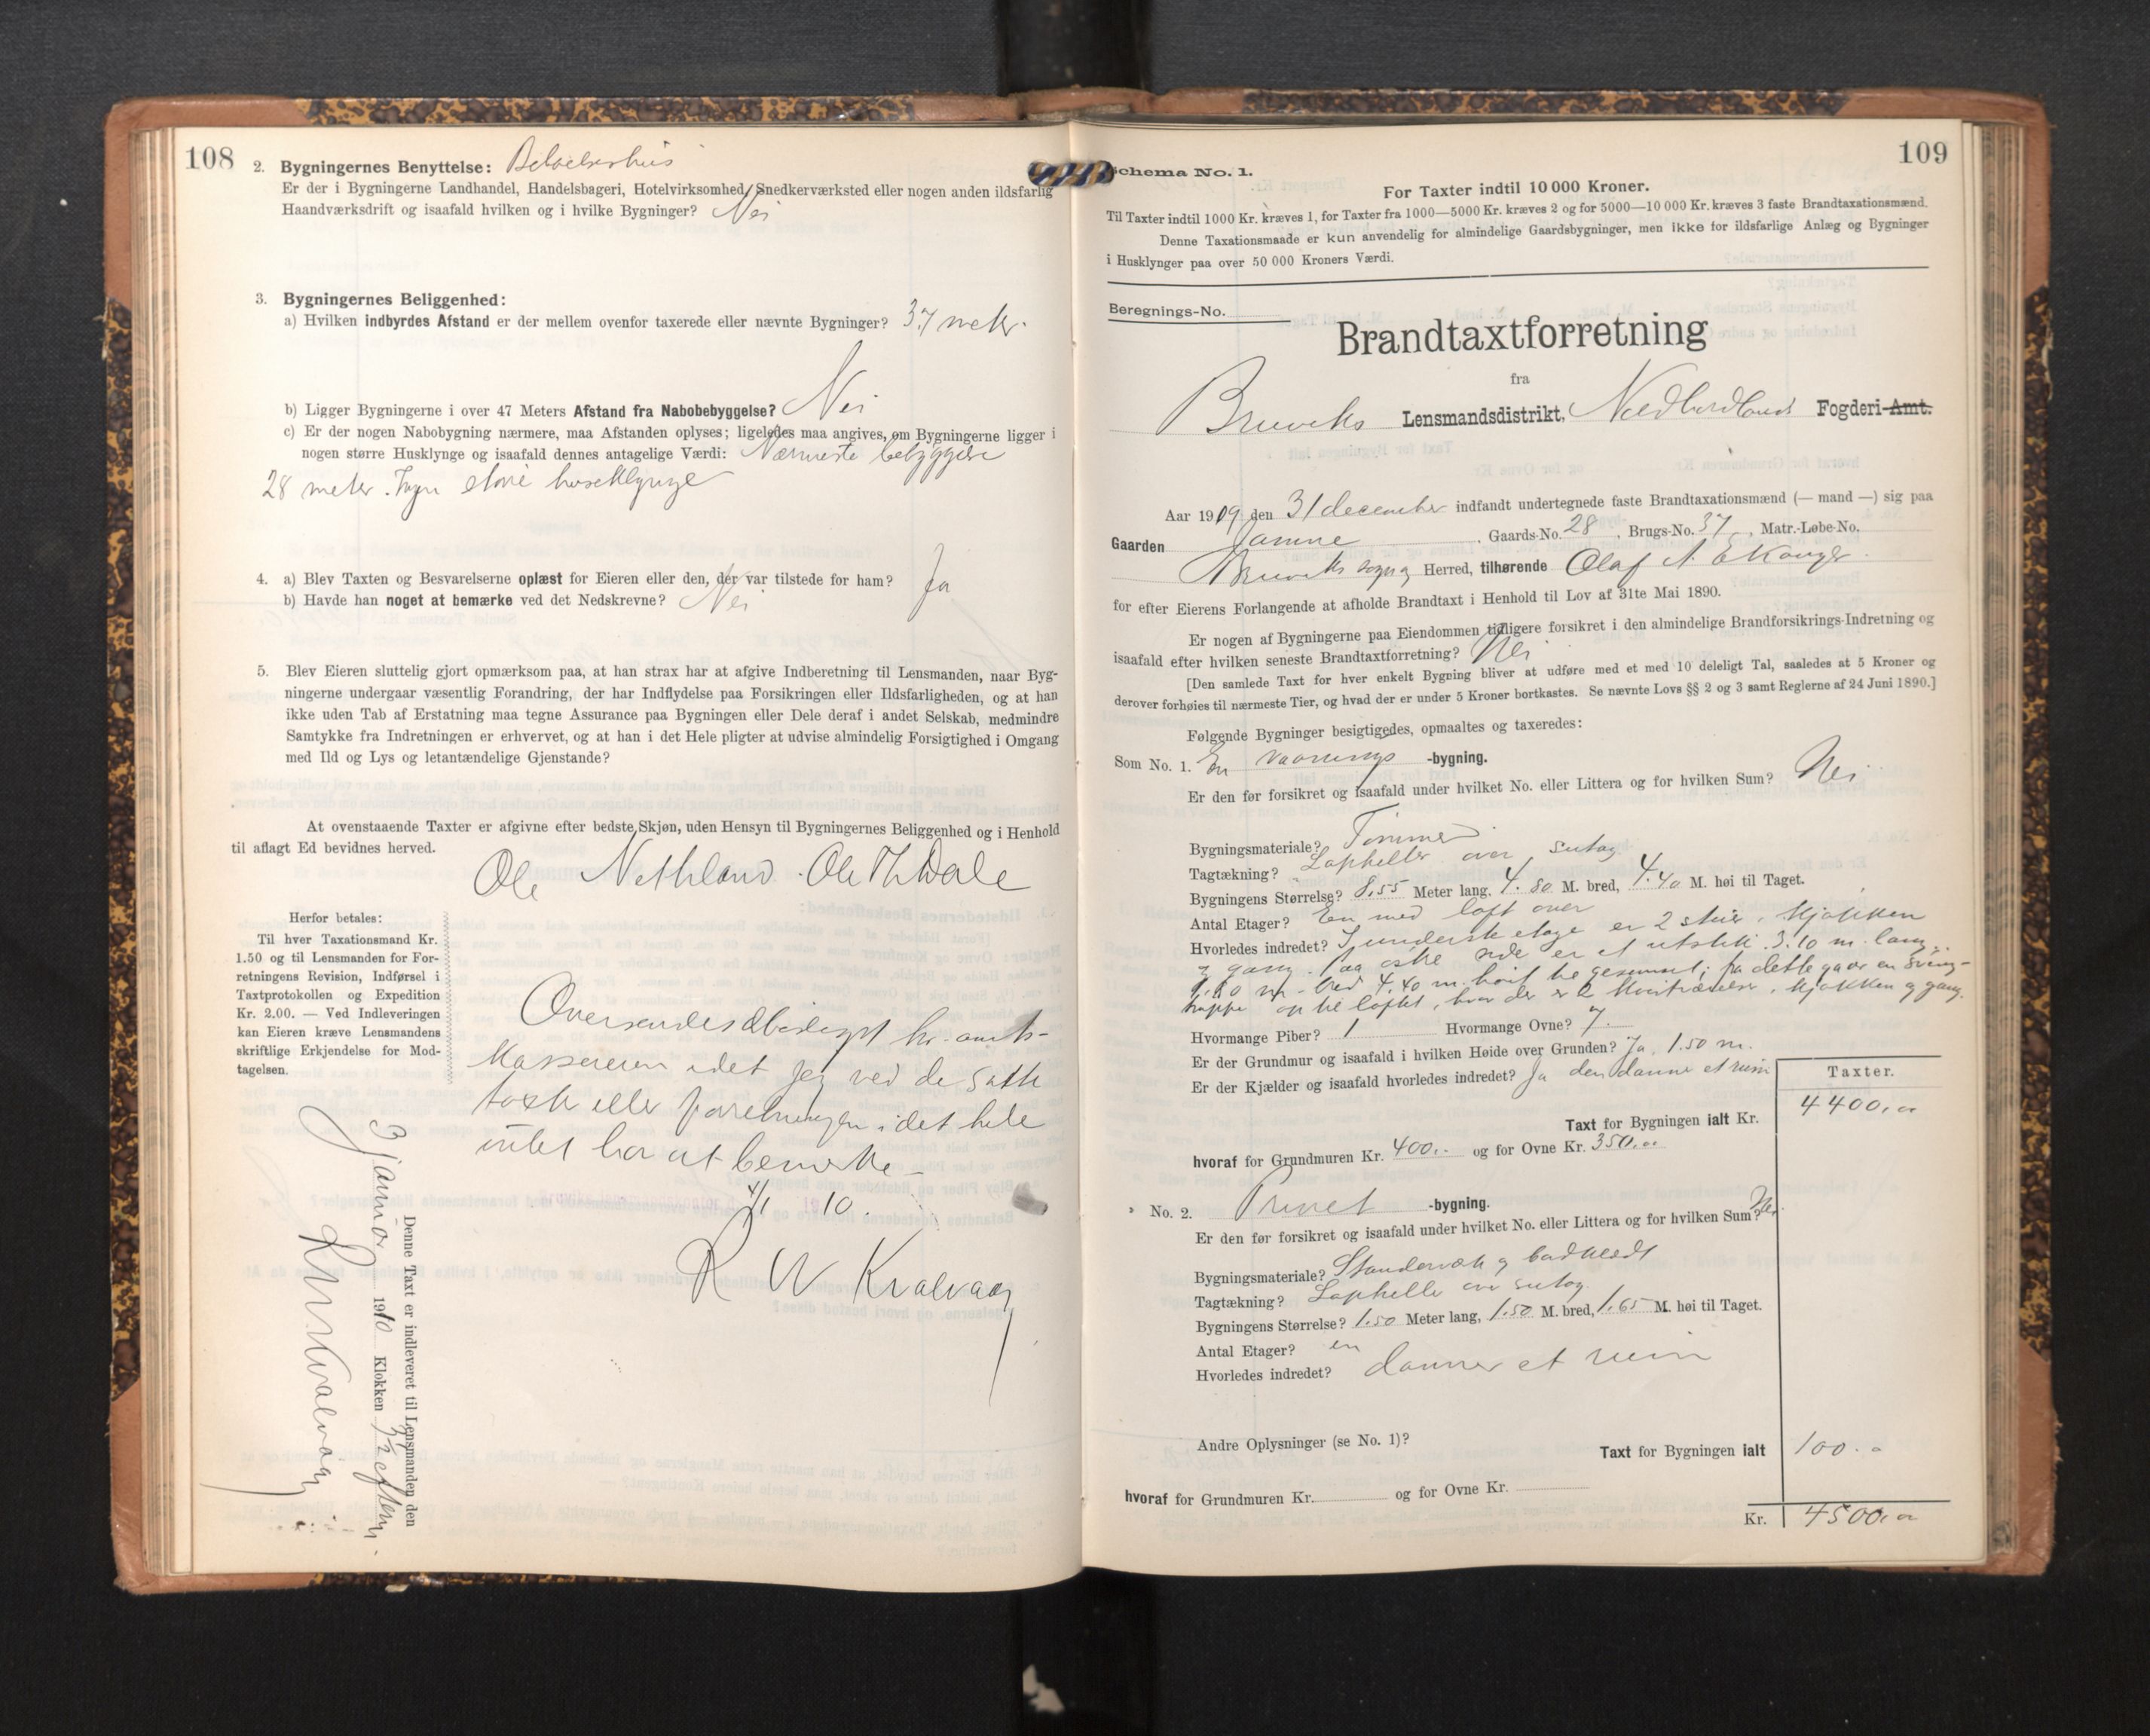 108
2. Bygningernes Benyttelse: Beboelseshus
Er der i Bygningerne Landhandel, Handelsbageri, Hotelvirksomhed, Snedkerværksted eller nogen anden ildsfarlig
Haandværksdrift og isaafald hvilken og i hvilke Bygninger? Nei
3. Bygningernes Beliggenhed:
a) Hvilken indbyrdes Afstand er der mellem ovenfor taxerede eller nævnte Bygninger? 37 meter.
b) Ligger Bygningerne i over 47 Meters Afstand fra Nabobebyggelse? Nei
c) Er der nogen Nabobygning nærmere, maa Afstanden oplyses; ligeledes maa angives, om Bygningerne ligger i
nogen større Husklynge og isaafald dennes antagelige Værdi: Nærmeste bebyggelse
28 meter. Ingen større huseklynge
4. a) Blev Taxten og Besvarelserne oplæst for Eieren eller den, der var tilstede for ham? Ja
b) Havde han noget at bemærke ved det Nedskrevne? Nei
5. Blev Eieren sluttelig gjort opmærksom paa, at han strax har at afgive Indberetning til Lensmanden, naar Byg-
ningerne undergaar væsentlig Forandring, der har Indflydelse paa Forsikringen eller Ildsfarligheden, og at han
ikke uden Tab af Erstatning maa tegne Assurance paa Bygningen eller Dele deraf i andet Selskab, medmindre
Samtykke fra Indretningen er erhvervet, og at han i det Hele pligter at udvise almindelig Forsigtighed i Omgang
med Ild og Lys og letantændelige Gjenstande?
At ovenstaaende Taxter er afgivne efter bedste Skjøn, uden Hensyn til Bygningernes Beliggenhed og i Henhold
til aflagt Ed bevidnes herved.
Ole Nethland. Ole Th Dale
Herfor betales:
Til hver Taxationsmand Kr.
1.50 og til Lensmanden for For-
retningens Revision, Indførsel i
Taxtprotokollen og Expedition
Kr. 2.00. — Ved Indleveringen
kan Eieren kræve Lensmandens
skriftlige Erkjendelse for Mod-
tagelsen.
Oversendes hr. amts-
kassereren idet jeg ved de satte
taxter eller forretningen i det hele
intet har at bemerke —
4/1 10.
R W Kvalvaag
Denne Taxt er indleveret til Lensmanden den
3 januar 1910 Klokken 3½ efterm.
R W Kvalvaag
109
Schema No. 1.
For Taxter indtil 10 000 Kroner.
Til Taxter indtil 1000 Kr. kræves 1, for Taxter fra 1000—5000 Kr. kræves 2 og for 5000—10 000 Kr. kræves 3 faste Brandtaxationsmænd.
Denne Taxationsmaade er kun anvendelig for almindelige Gaardsbygninger, men ikke for ildsfarlige Anlæg og Bygninger
i Husklynger paa over 50 000 Kroners Værdi.
Beregnings-No.
Brandtaxtforretning
fra
Bruviks Lensmandsdistrikt, Nordhordlands Fogderi-Amt.
Aar 1909 den 31 december indfandt undertegnede faste Brandtaxationsmænd (— mand —) sig paa
Gaarden Jamne. Gaards-No. 28, Brugs-No. 37, Matr.-Løbe-No.
Bruviks sogn og Herred, tilhørende Olaf A Ekanger.
for efter Eierens Forlangende at afholde Brandtaxt i Henhold til Lov af 31te Mai 1890.
Er nogen af Bygningerne paa Eiendommen tidligere forsikret i den almindelige Brandforsikrings-Indretning og
isaafald efter hvilken seneste Brandtaxtforretning? Nei
[Den samlede Taxt for hver enkelt Bygning bliver at udføre med et med 10 deleligt Tal, saaledes at 5 Kroner og
derover forhøies til nærmeste Tier, og hvad der er under 5 Kroner bortkastes. Se nævnte Lovs §§ 2 og 3 samt Reglerne af 24 Juni 1890.]
Følgende Bygninger besigtigedes, opmaaltes og taxeredes:
Som No. 1. En vaanings -bygning.
Er den før forsikret og isaafald under hvilket No. eller Littera og for hvilken Sum? Nei
Bygningsmateriale? Tømmer
Tagtækning? Lapheller over sutag
Bygningens Størrelse? 8.55 Meter lang, 4.80 M. bred, 4.40 M. høi til Taget.
Antal Etager? En med loft over
Hvorledes indredet? I underste etage er 2 stuer, kjøkken
og gang. Paa østre side er et utstik 3.10 m. lang,
1.60 m. bred 4.40 m. høit til gesimset; fra dette gaar en sving-
trappe op til loftet, hvor der er 2 kvistværelser, kjøkken og gang.
Hvormange Piber? 1 Hvormange Ovne? 7.
Er der Grundmur og isaafald i hvilken Høide over Grunden? Ja, 1.50 m.
Er der Kjælder og isaafald hvorledes indredet? Ja den danner et rum
Taxter.
Taxt for Bygningen ialt Kr. 4400,00
hvoraf for Grundmuren Kr. 400.- og for Ovne Kr. 350.00
» No. 2. Privet -bygning.
Er den før forsikret og isaafald under hvilket No. eller Littera og for hvilken Sum? Nei
Bygningsmateriale? Standerværk og bordklædt
Tagtækning? Lapheller over sutag.
Bygningens Størrelse? 1.50 Meter lang, 1.50 M. bred, 1.65 M. høi til Taget.
Antal Etager? en
Hvorledes indredet? danner et rum
Andre Oplysninger (se No. 1)?
Taxt for Bygningen ialt 100.-
hvoraf for Grundmuren Kr. og for Ovne Kr.
Kr. 4500,00